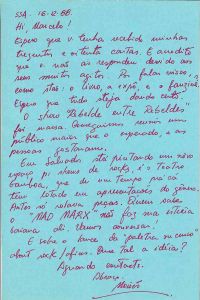 SSA. 16-12-88.
Hi, Marcelo!
Espero que v. tenha recebido minhas
trezentas e oitenta cartas. E acredito
que v. não as respondeu devido aos
seus muitos agitos. Por falar nisso,
como stão: o livro, a expô, e o fanzine.
Espero que tudo steja dando certo.
O show "Rebelde entre Rebeldes"
foi massa. Conseguimos reunir um
público maior que o esperado, e as
pessoas gostaram.
Em Salvador stá pintando um novo
espaço p/ shows de rock, é o Teatro
Gamboa, que de um tempo pra cá
tem lotado em apresentações do gênero.
Antes só rolava peças. Quem sabe
o "MAD MARX" não faz na
baiana ali. Vamos conversar.
E sobre o lance da "palestra ou
about rock/afins. Que tal a idéia?
Aguardo contacto.
Abraço,